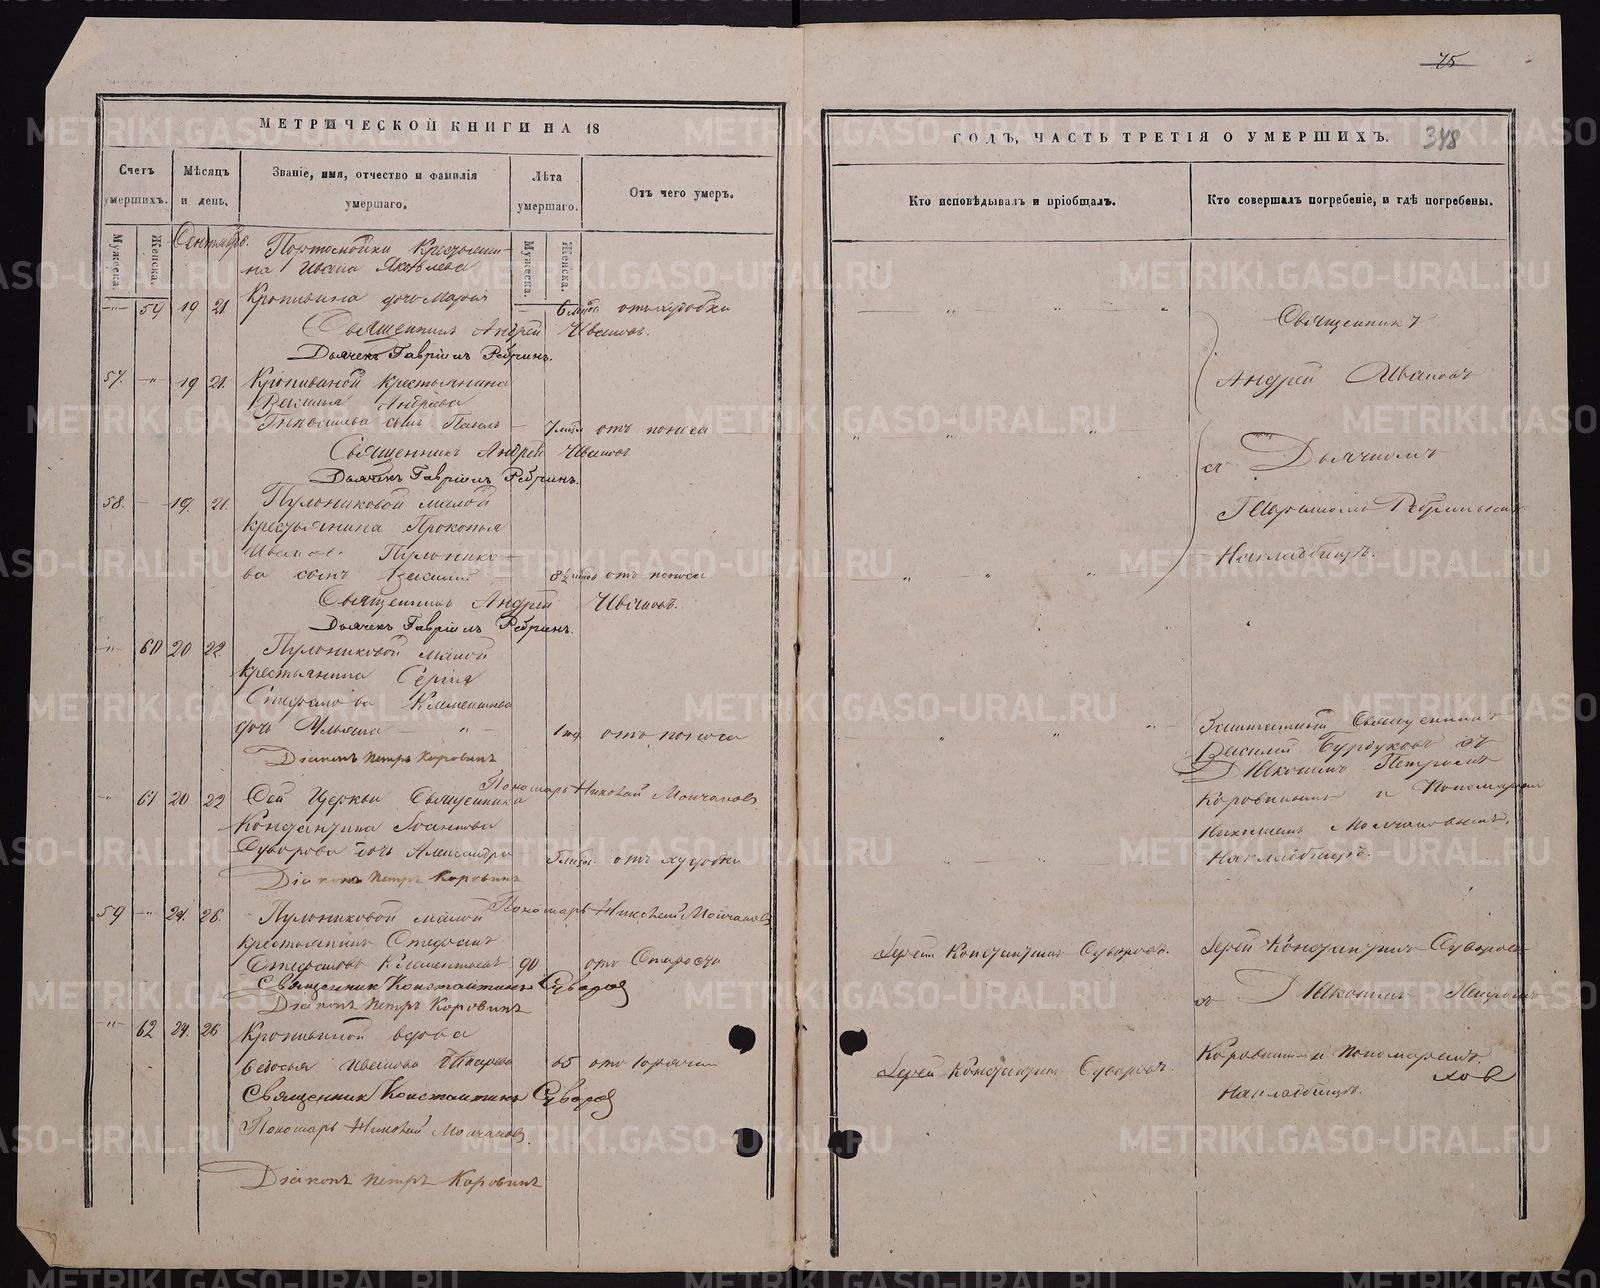 75
МЕТРИЧЕСКОЙ КНИГИ НА 18
ГОДЪ, ЧАСТЬ ТРЕТІЯ О УМЕРШИХЪ.
348
Счетъ умершихъ.
Мѣсяцъ и день.
Званіе, имя, отчество и фамилія умершаго.
Лѣта умершаго.
Отъ чего умеръ.
Кто исповѣдывалъ и пріобщалъ.
Кто совершалъ погребеніе, и гдѣ погребены.
Мужеска.
Женска.
Мужеска.
Женска.
Сентябрь.
Портомойки Крестьяни-
на Ивана Яковлева
59 19 21 Кропивина дочь Марія 6 отъ худобы
Священникъ Андрей Ивановъ.
Дьячекъ Гавріилъ Ребринъ.
57. 19 21. Кропивиной крестьянина
Василья Андреева
сынъ Павелъ 7 отъ поноса
Священникъ Андрей Ивановъ
Дьячекъ Гавріилъ Ребринъ.
58. 19. 21. Пульниковой малой
крестьянина Прокопья
Иванова Пульнико-
ва сынъ Василій 8½ отъ поноса
Священникъ Андрей Ивановъ.
Дьячекъ Гавріилъ Ребринъ.
60 20 22 Пульниковой малой
крестьянина Сергія
Стефанова Климентьева
дочь Ульяна 1 отъ поноса
Діаконъ Петръ Коровинъ
Пономарь Николай Молчановъ
61 20 22 Сей Церкви Священника
Константина Іоаннова
Суворова дочь Александра 5 отъ худобы
Діаконъ Петръ Коровинъ
Пономарь Николай Молчановъ
59 24. 26. Пульниковой малой
крестьянинъ Стефанъ
Стефановъ Климентьевъ 90 отъ Старости
Священникъ Константинъ Суворов
Діаконъ Петръ Коровинъ
62 24. 26 Кропивиной вдова
Федосья Иванова 65 отъ горячки
Священникъ Константинъ Суворов
Пономарь Николай Молчановъ.
Діаконъ Петръ Коровинъ
Священникъ
Андрей Ивановъ
съ Дьячкомъ
Гавріиломъ Ребринымъ
На кладбищѣ.
Заштатный Священникъ
Василій Бурдуковъ съ
Діакономъ Петромъ
Коровинымъ и Пономаремъ
Николаемъ Молчановымъ.
На кладбищѣ.
Іерей Константинъ Суворовъ.
Іерей Константинъ Суворовъ
съ Діакономъ Петромъ
Іерей Константинъ Суворовъ.
Коровинымъ и пономаремъ
На кладбищѣ.
METRIKI.GASO-URAL.RU